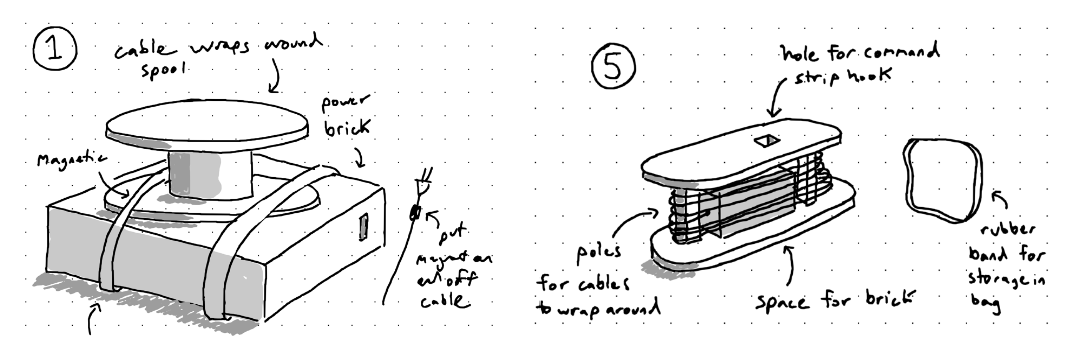 1
cable wraps around
spool
power
brick
Magnetic
put
magnet on
end off
cable
5
hole for command
strip hook
poles
for cables
to wrap around
space for brick
rubber
band for
storage in
bag